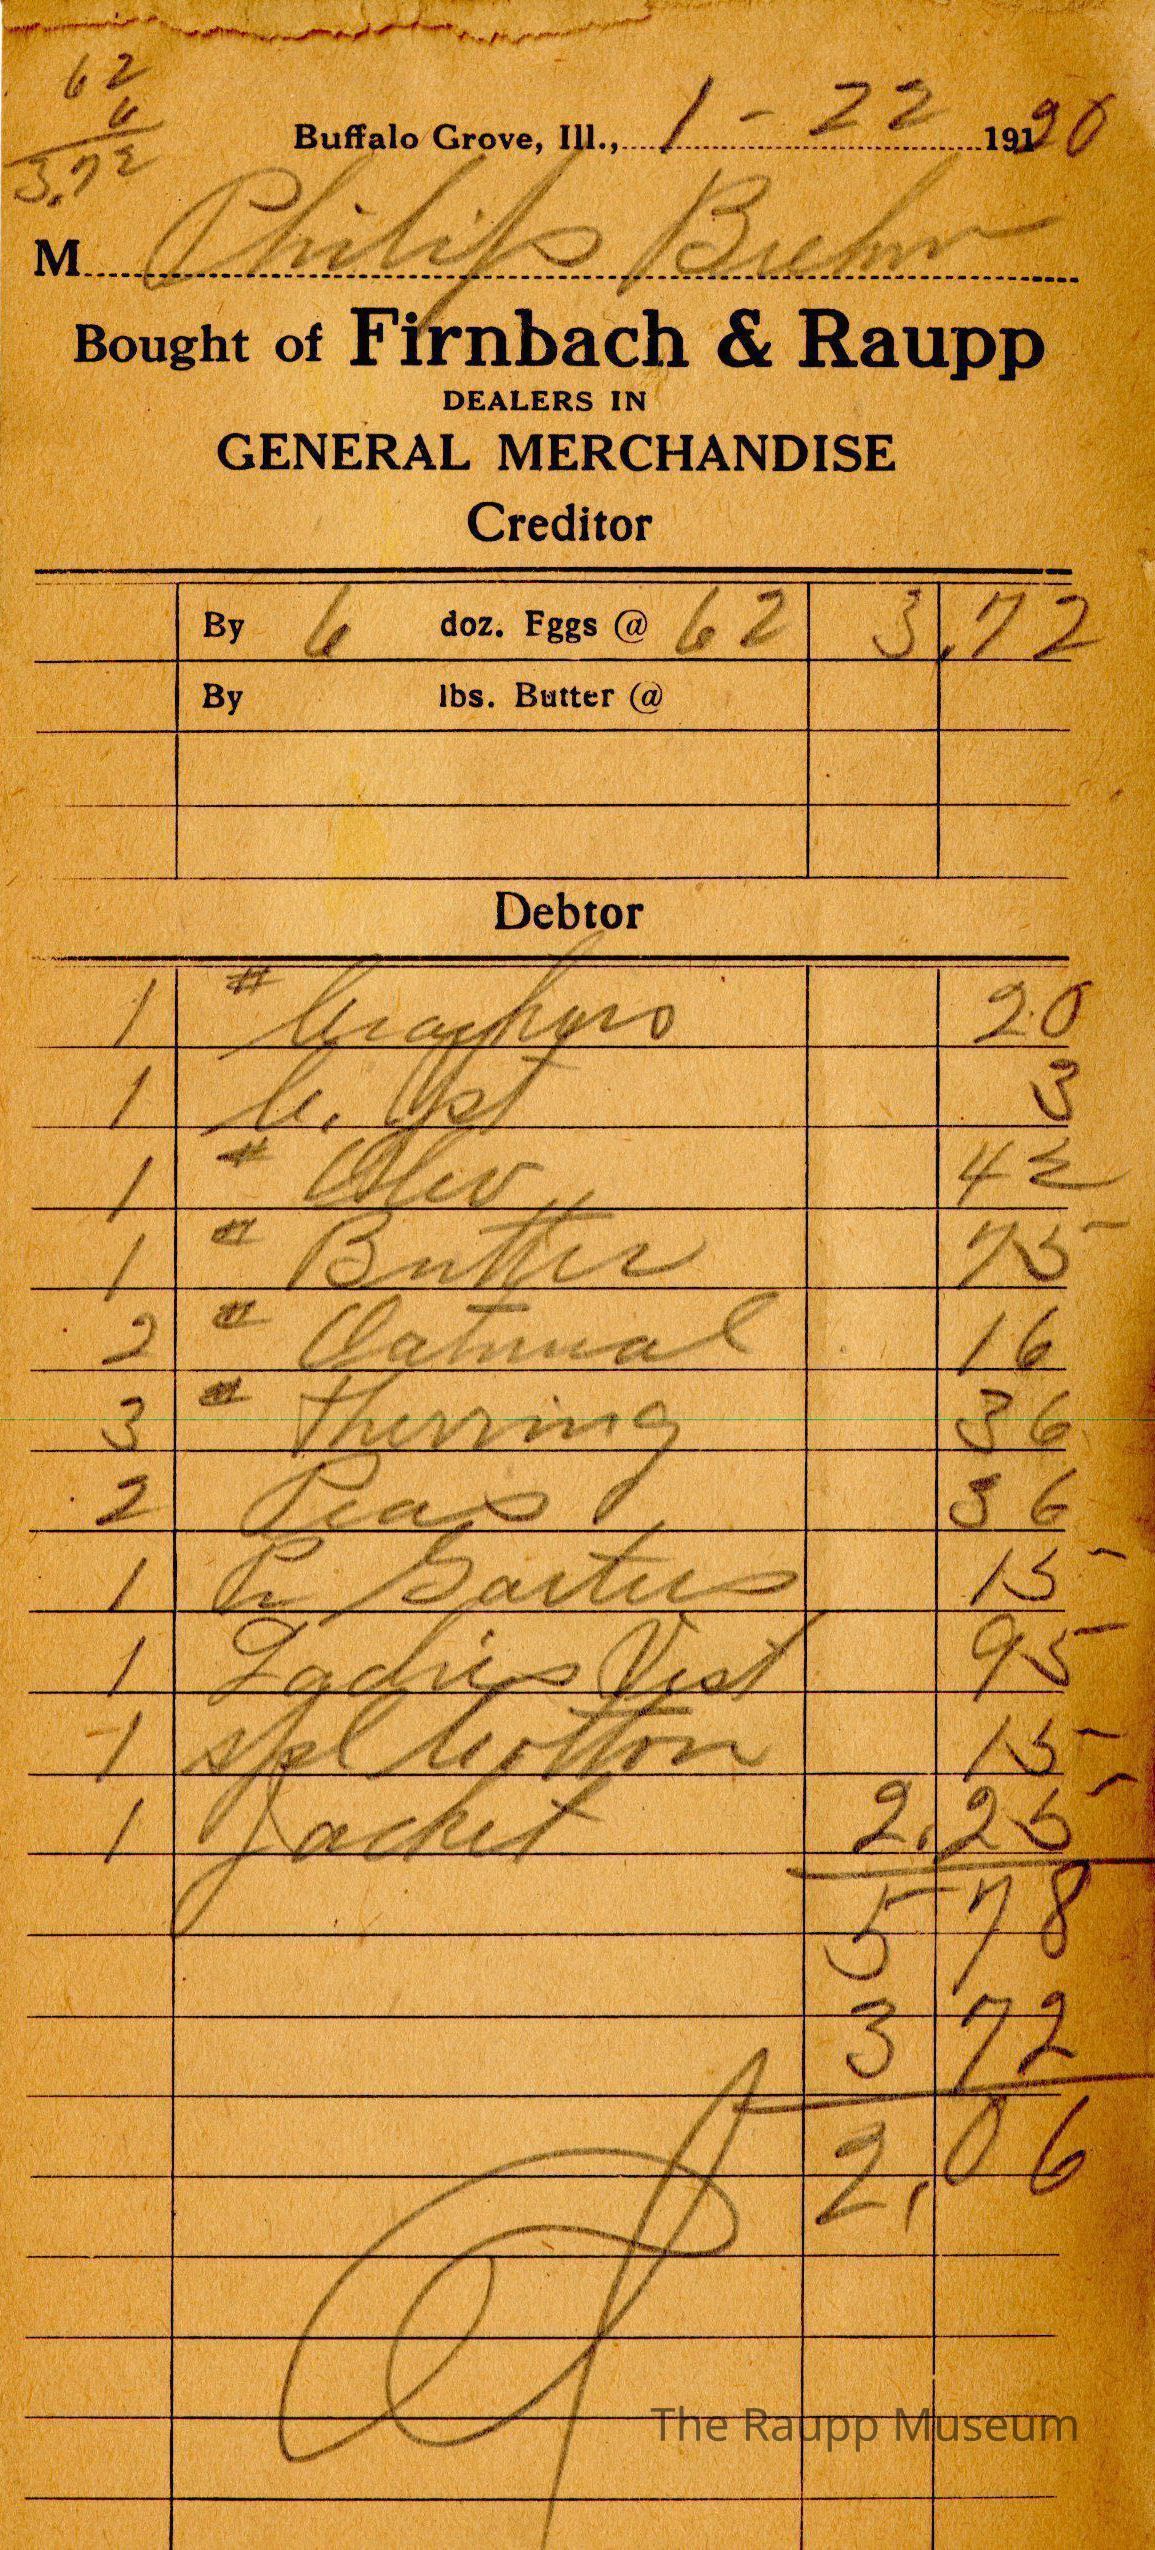 62
6
3.72
Buffalo Grove, Ill., 1-22 1920
M Philip Buehr
Bought of Firnbach & Raupp
DEALERS IN
GENERAL MERCHANDISE
Creditor
By 6 doz. Eggs @ 62 3.72
By lbs. Butter @
Debtor
1 # 20
1 C. Yst 3
1 # Oleo 42
1 # Butter 75
2 # Oatmeal 16
3 # Herring 36
2 Peas 36
1 Pr Garters 15
1 Ladies Vest 95
1 spl Cotton 15
1 Jacket 2.25
5 78
3 72
2.06
The Raupp Museum